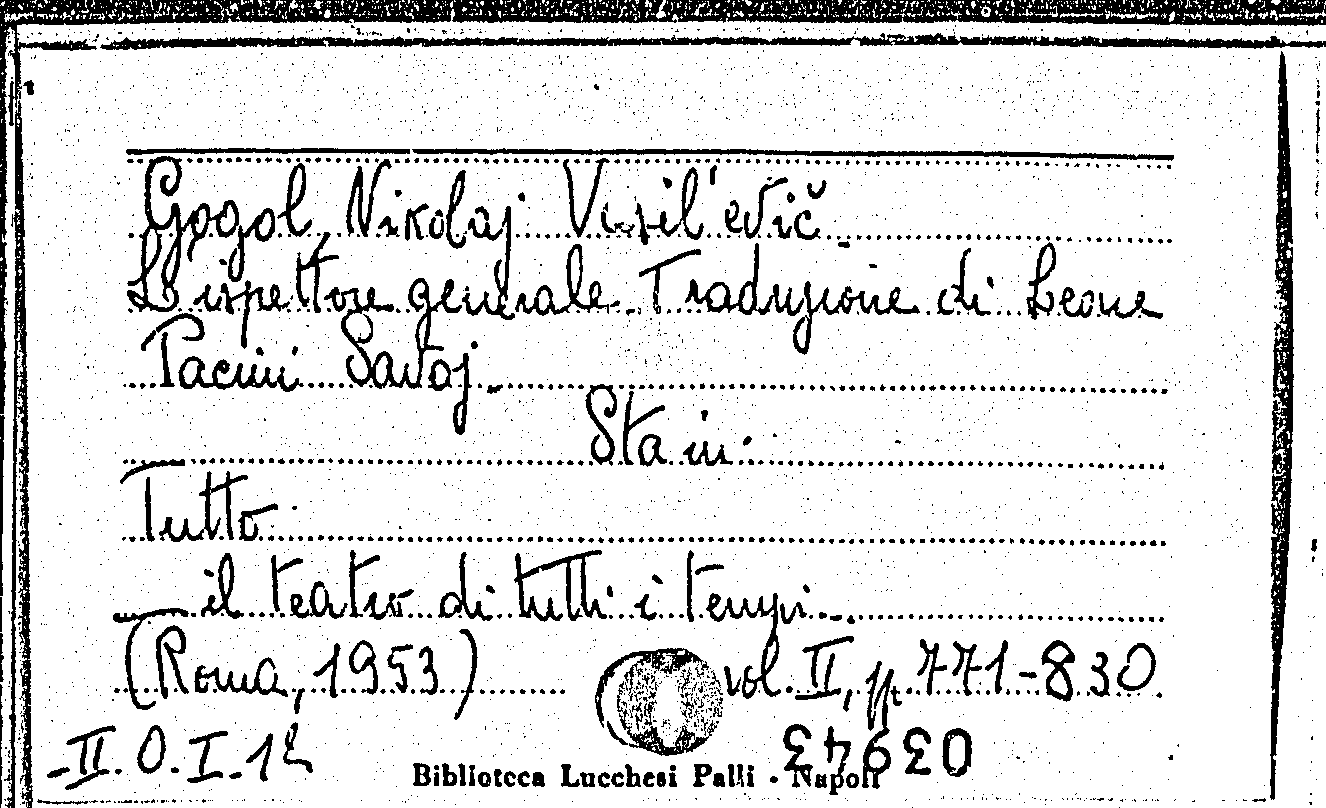 Gogol, Nikolaj Vasil'evič.
L'ispettore generale. Traduzione di Leone
Pacini Savoj.
Sta in:
Tutto
il teatro di tutti i tempi.
(Roma, 1953) vol. II, pp. 771-830.
II. O. I. 12
Biblioteca Lucchesi Palli - Napoli